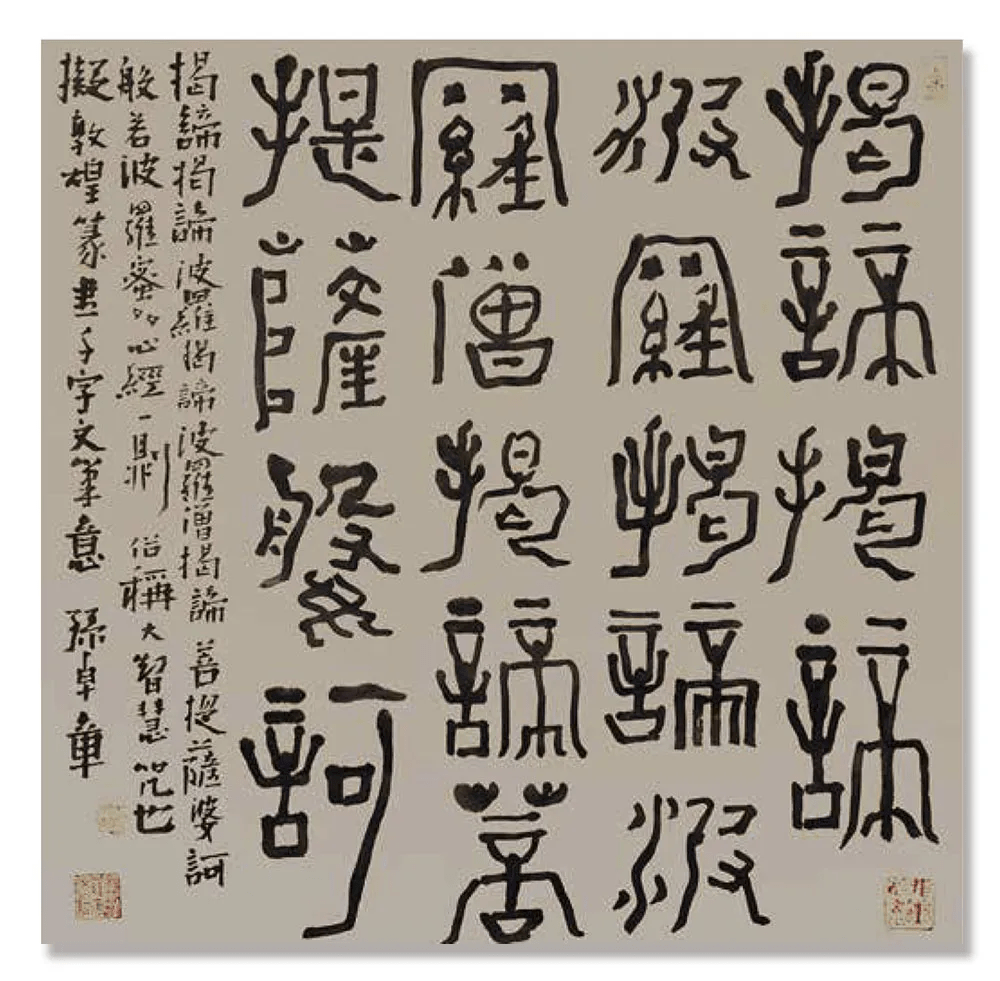 揭諦揭諦
波羅揭諦波
羅僧揭諦菩
提薩婆訶
揭諦揭諦波羅揭諦波羅僧揭諦菩提薩婆訶
般若波羅蜜多心經一則俗稱大智慧咒也
擬敦煌篆書千字文筆意 孫卓章